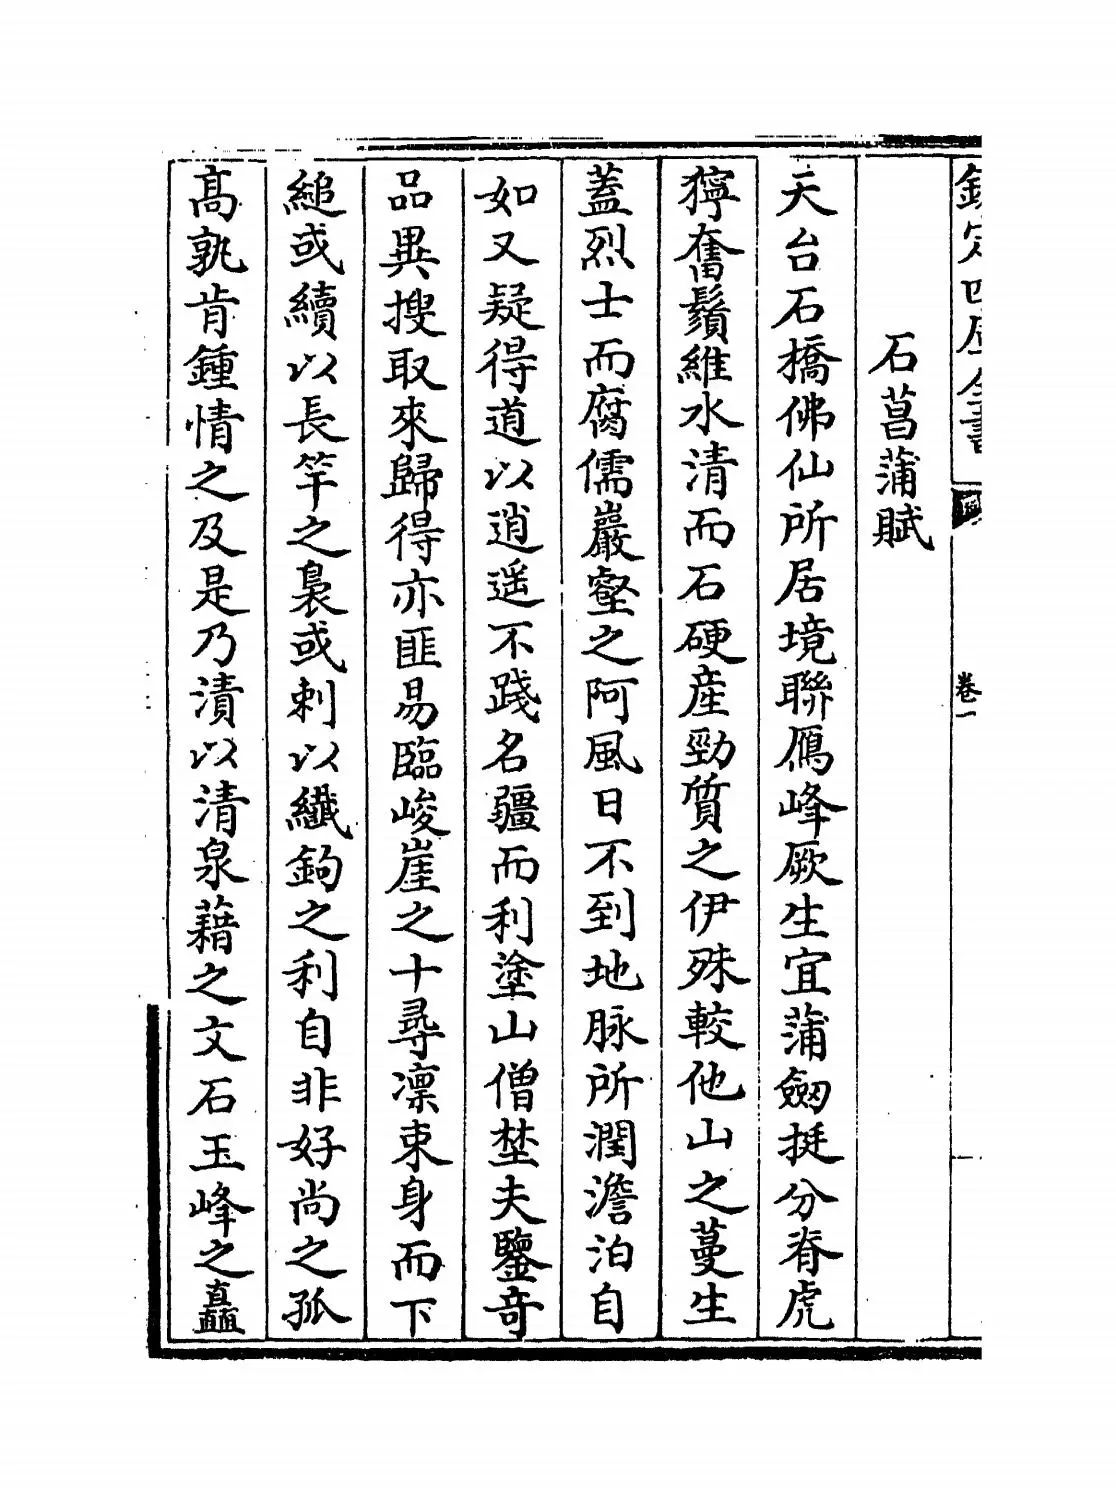 欽定四庫全書
卷一
石菖蒲賦
天台石橋佛仙所居境聯鴈峰厥生宜蒲劔挺分脊虎
獰奮鬚維水清而石硬產勁質之伊殊較他山之蔓生
蓋烈士而腐儒巖壑之阿風日不到地脉所潤澹泊自
如又疑得道以逍遥不踐名疆而利塗山僧埜夫鑒竒
品異搜取來歸得亦匪易臨峻崖之十尋凛束身而下
縋或續以長竿之裊或刺以纎鉤之利自非好尚之孤
髙孰肯鍾情之及是乃漬以清泉藉之文石玉峰之矗